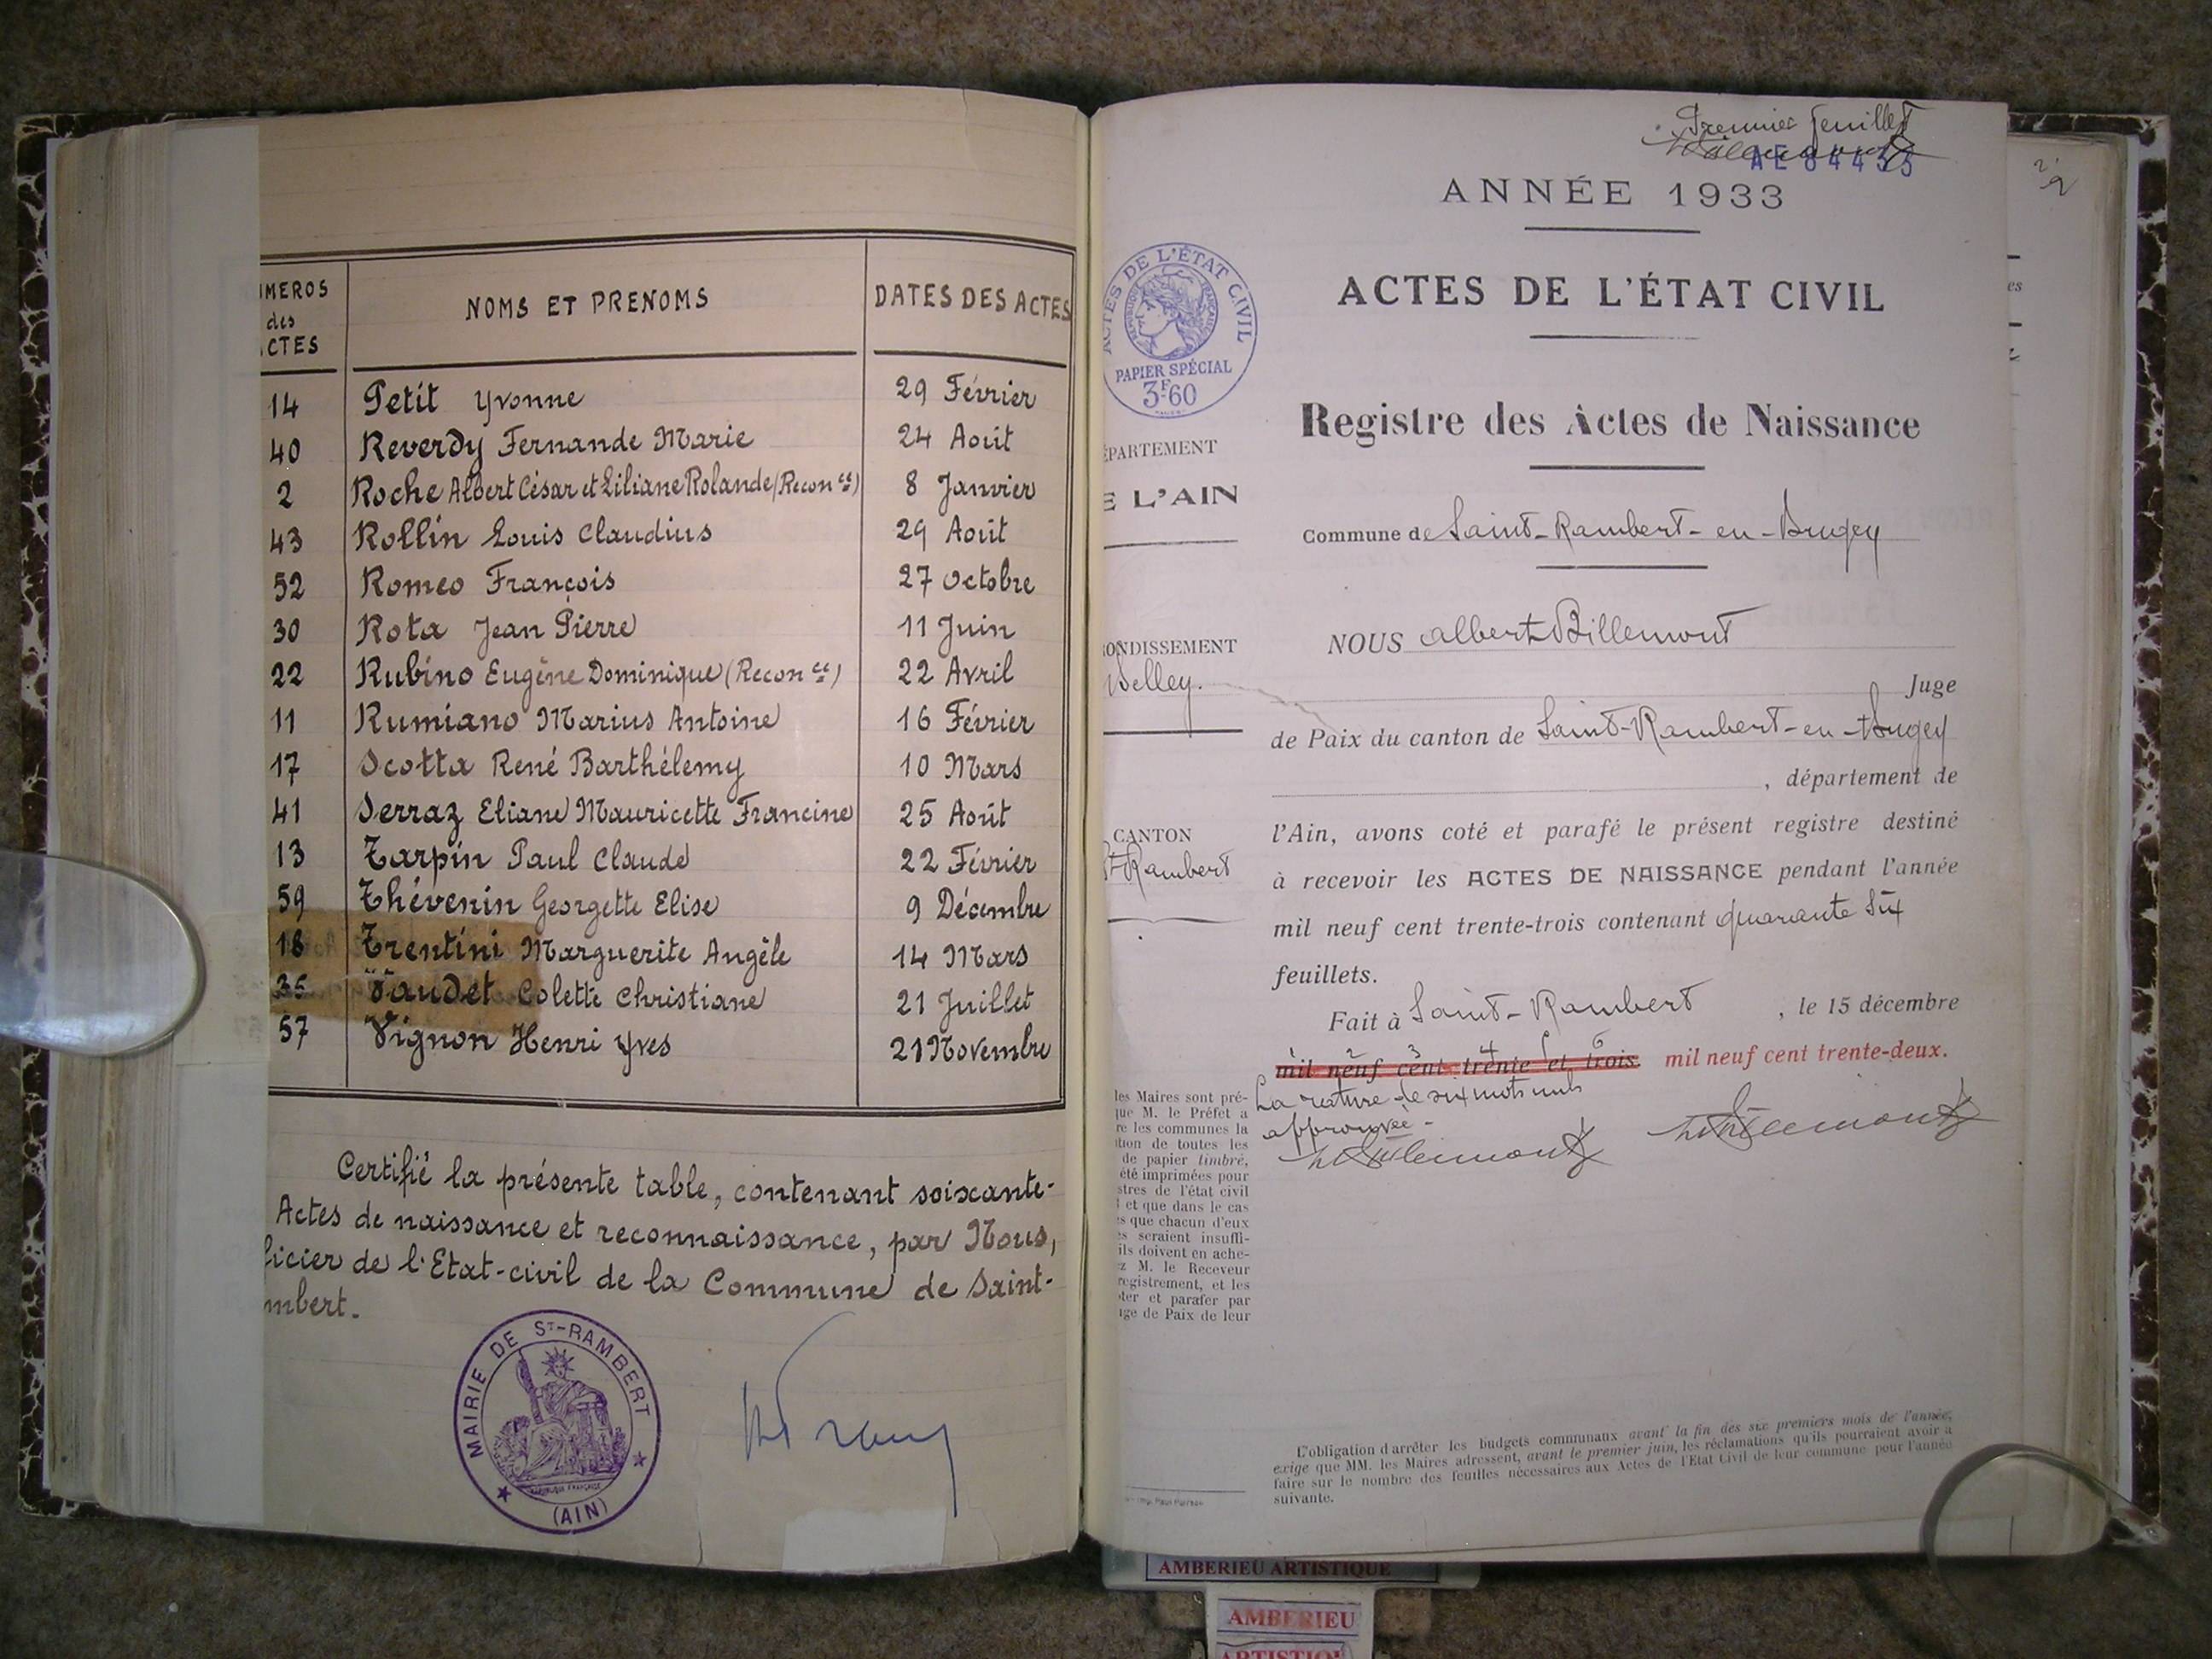 MEROS
des
CTES
NOMS ET PRENOMS
DATES DES ACTES
14 Petit Yvonne 29 Février
40 Reverdy Fernande Marie 24 Août
2 Roche Albert César et Liliane Rolande (Recon ce) 8 Janvier
43 Rollin Louis Claudius 29 Août
52 Romeo François 27 Octobre
30 Rota Jean Pierre 11 Juin
22 Rubino Eugène Dominique (Recon ce) 22 Avril
11 Rumiano Marius Antoine 16 Février
17 Scotta René Barthélemy 10 Mars
41 Serraz Eliane Mauricette Francine 25 Août
13 Tarpin Paul Claude 22 Février
59 Thévenin Georgette Elise 9 Décembre
18 Trentini Marguerite Angèle 14 Mars
35 Vaudet Colette Christiane 21 Juillet
57 Vignon Henri Yves 21 Novembre
Certifié la présente table, contenant soixante-
Actes de naissance et reconnaissance, par Nous,
ficier de l'Etat-civil de la Commune de Saint-
mbert.
MAIRIE DE ST-RAMBERT
RÉPUBLIQUE FRANÇAISE
(AIN)
Premier feuillet
AE 84433
ANNÉE 1933
ACTES DE L'ÉTAT CIVIL
RÉPUBLIQUE FRANÇAISE
PAPIER SPÉCIAL
3F60
ACTES DE L'ÉTAT CIVIL
Registre des Actes de Naissance
ÉPARTEMENT
E L'AIN
Commune de Saint-Rambert-en-Bugey
RONDISSEMENT
Belley.
CANTON
St Rambert
NOUS Albert Billemont
Juge
de Paix du canton de Saint-Rambert-en-Bugey
, département de
l'Ain, avons coté et parafé le présent registre destiné
à recevoir les ACTES DE NAISSANCE pendant l'année
mil neuf cent trente-trois contenant quarante six
feuillets.
Fait à Saint-Rambert , le 15 décembre
1 2 3 4 5 6
mil neuf cent trente et trois. mil neuf cent trente-deux.
La rature de six mots nuls
approuvée -
les Maires sont pré-
que M. le Préfet a
re les communes la
tion de toutes les
de papier timbré,
été imprimées pour
stres de l'état civil
et que dans le cas
s que chacun d'eux
s seraient insuffi-
ils doivent en ache-
z M. le Receveur
registrement, et les
ter et parafer par
ge de Paix de leur
L'obligation d'arrêter les budgets communaux avant la fin des six premiers mois de l'année,
exige que MM. les Maires adressent, avant le premier juin, les réclamations qu'ils pourraient avoir à
faire sur le nombre des feuilles nécessaires aux Actes de l'Etat Civil de leur commune pour l'année
suivante.
es
2
AMBERIEU ARTISTIQUE
AMBERIEU
ARTISTIQU